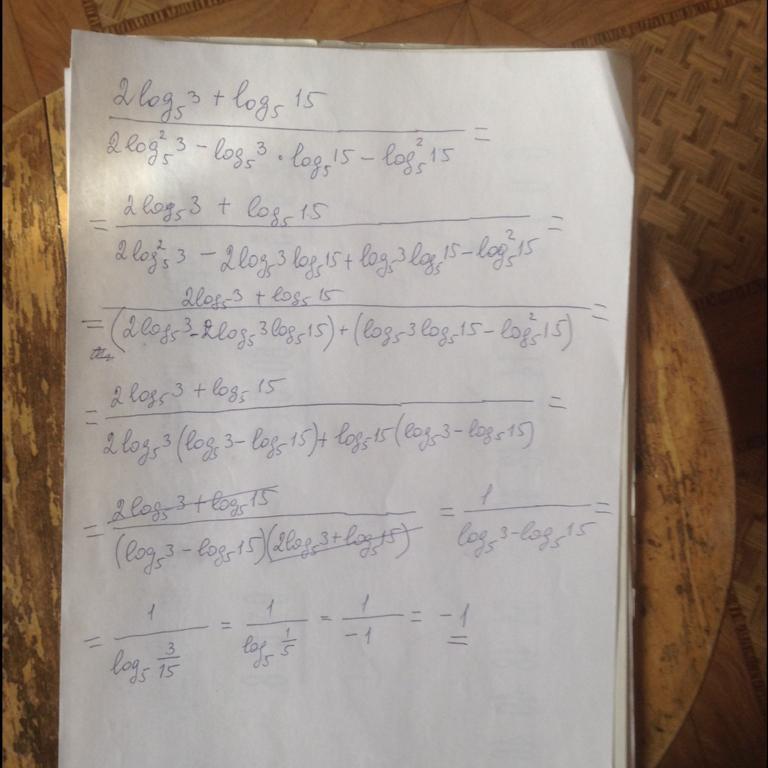 2log₅3 + log₅15
2log₅²3 − log₅3 · log₅15 − log₅²15 =
= 2log₅3 + log₅15 =
2log₅²3 − 2log₅3 log₅15 + log₅3 log₅15 − log₅²15
2log₅3 + log₅15
= (2log₅3 − 2log₅3 log₅15) + (log₅3 log₅15 − log₅²15) =
= 2log₅3 + log₅15 =
2log₅3 (log₅3 − log₅15) + log₅15 (log₅3 − log₅15)
= 2log₅3 + log₅15 = 1 =
(log₅3 − log₅15)(2log₅3 + log₅15) log₅3 − log₅15
= 1 = 1 = 1 = −1
log₅ 3/15 log₅ 1/5 −1